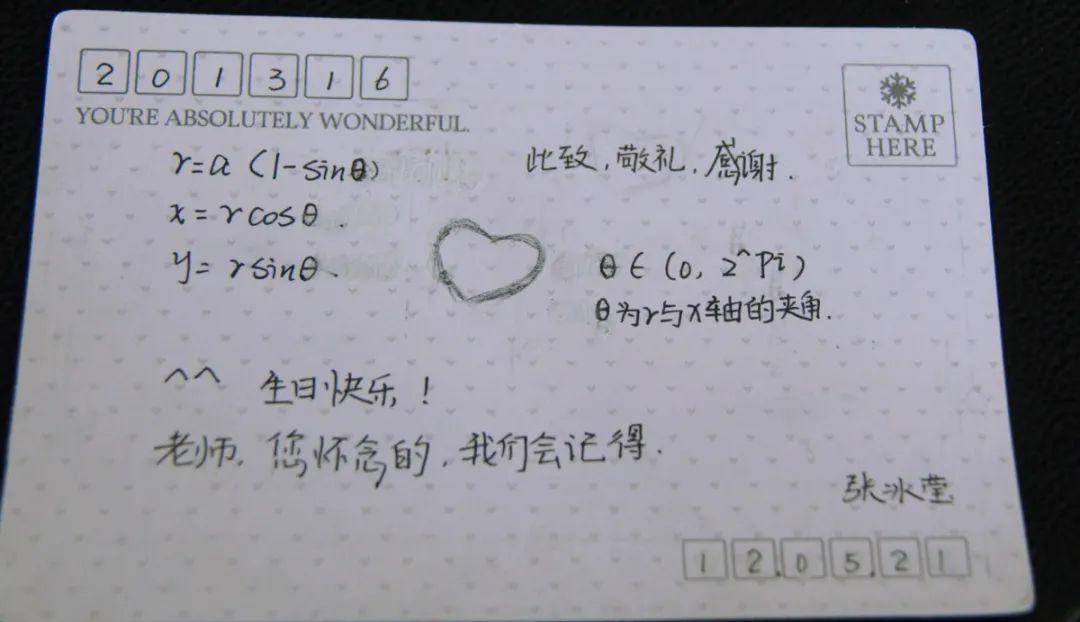 201316
YOU'RE ABSOLUTELY WONDERFUL.
STAMP
HERE
r=a(1-sinθ)
x=rcosθ.
y=rsinθ.
此致,敬礼,感谢.
θ∈(0, 2^Pi)
θ为r与x轴的夹角.
^^ 生日快乐!
老师.您怀念的,我们会记得.
张冰莹
12.05.21